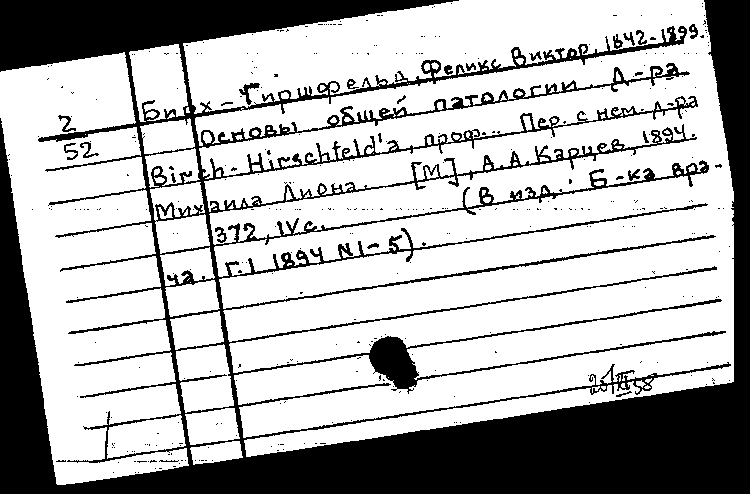 Бирх-Гиршфельд, Феликс Виктор, 1842-1899.
2
52
Основы общей патологии д-ра
Birch-Hirschfeld'a, проф... Пер. с нем. д-ра
Михаила Лиона. [М], А.А. Карцев, 1894.
372, IV с. (В изд.: Б-ка вра-
ча. Г.I 1894 N1-5).